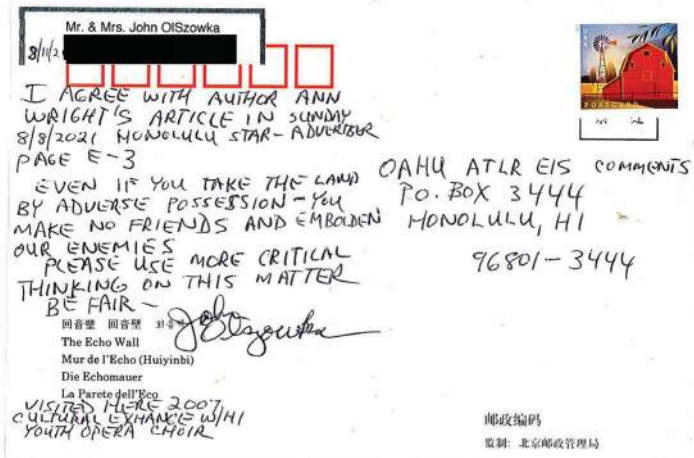 Mr. & Mrs. John OlSzowka
I AGREE WITH AUTHOR ANN
WRIGHT'S ARTICLE IN SUNDAY
8/8/2021 HONOLULU STAR-ADVERTISER
PAGE E-3
EVEN IF YOU TAKE THE LAND
BY ADVERSE POSSESSION - YOU
MAKE NO FRIENDS AND EMBOLDEN
OUR ENEMIES
PLEASE USE MORE CRITICAL
THINKING ON THIS MATTER
BE FAIR -
John Olszowka
回音壁 回音壁
The Echo Wall
Mur de l'Echo (Huiyinbi)
Die Echomauer
La Parete dell'Eco
VISITED HERE 2007
CULTURAL EXHANCE W/HI
YOUTH OPERA CHOIR
POSTCARD
OAHU ATLR EIS COMMENTS
P.O. BOX 3444
HONOLULU, HI
96801-3444
邮政编码
监制: 北京邮政管理局